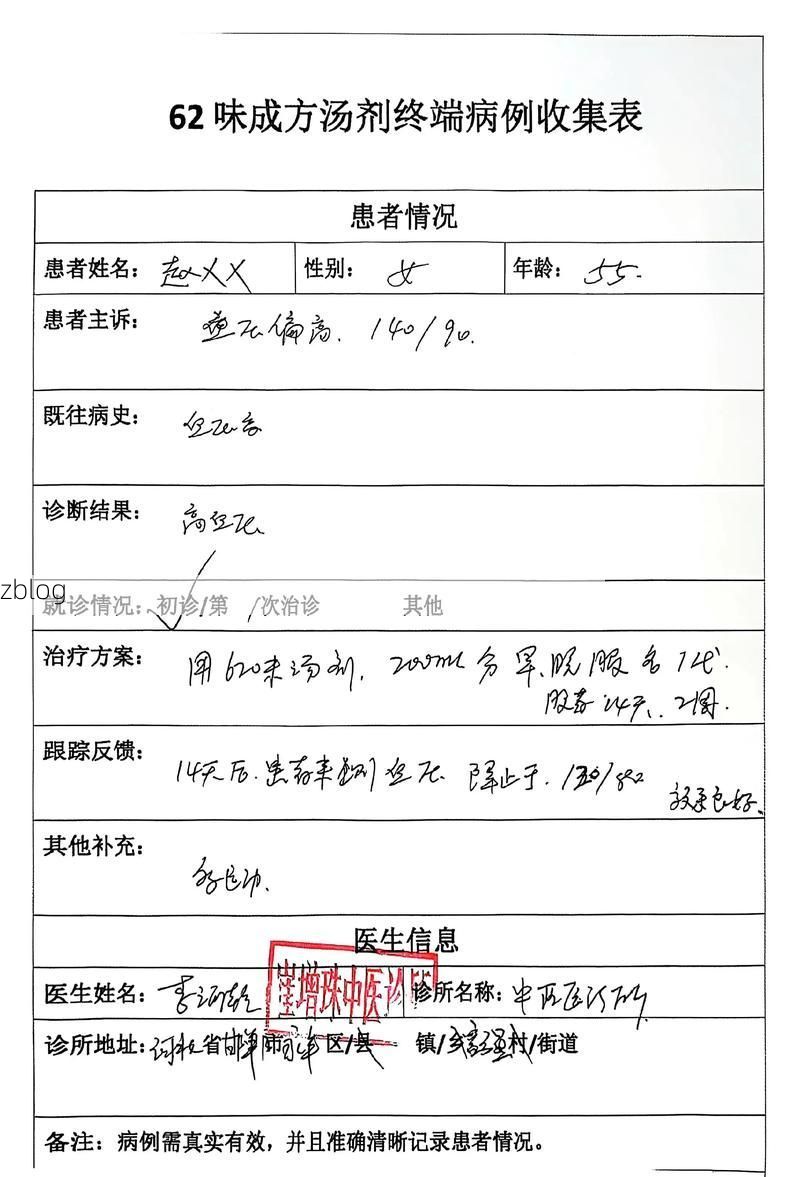 62味成方汤剂终端病例收集表
患者情况
患者姓名：赵XX 性别：女 年龄：55.
患者主诉：血压偏高. 140/90.
既往病史：血压高
诊断结果：高血压
zblog
就诊情况：初诊/第 /次治诊 其他
治疗方案：用62味汤剂, 200ml 分早、晚服各1代.
服药14天、2周.
跟踪反馈：14天后.患者来测血压 降止于.
效果良好、
其他补充：多运动.
医生信息
医生姓名：李 崔增珠中医诊所 诊所名称：中医诊所
诊所地址：河北省邯郸市 区/县 镇/乡 村/街道
备注：病例需真实有效，并且准确清晰记录患者情况。